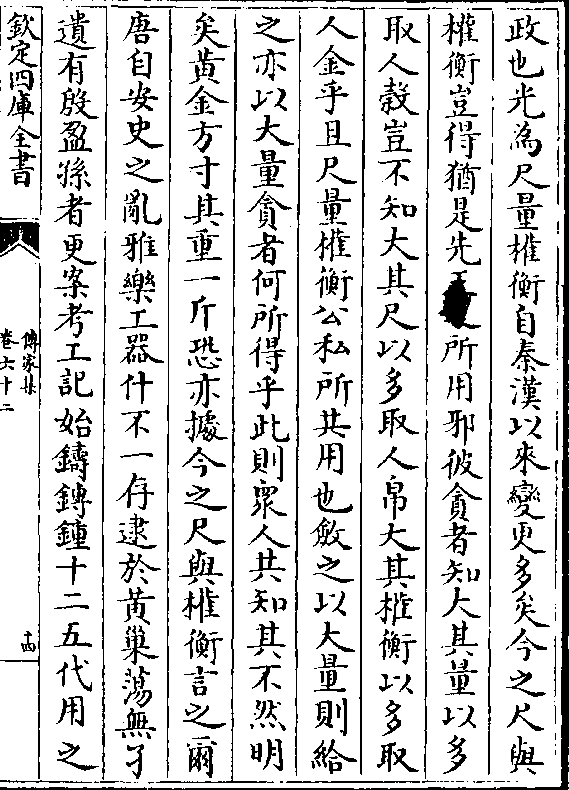 政也光為尺量權衡自秦漢以來變更多矣今之尺與
權衡豈得猶是先所用邪彼貪者知大其量以多
取人穀豈不知大其尺以多取人帛大其權衡以多取
人金乎且尺量權衡公私所共用也斂之以大量則給
之亦以大量貪者何所得乎此則衆人共知其不然明
矣黃金方寸其重一斤恐亦據今之尺與權衡言之爾
唐自安史之亂雅樂工器什不一存逮於黃巢蕩無孑
遺有殷盈孫者更案考工記始鑄鎛鍾十二五代用之
欽定四庫全書
傳家集
卷六十二
十四